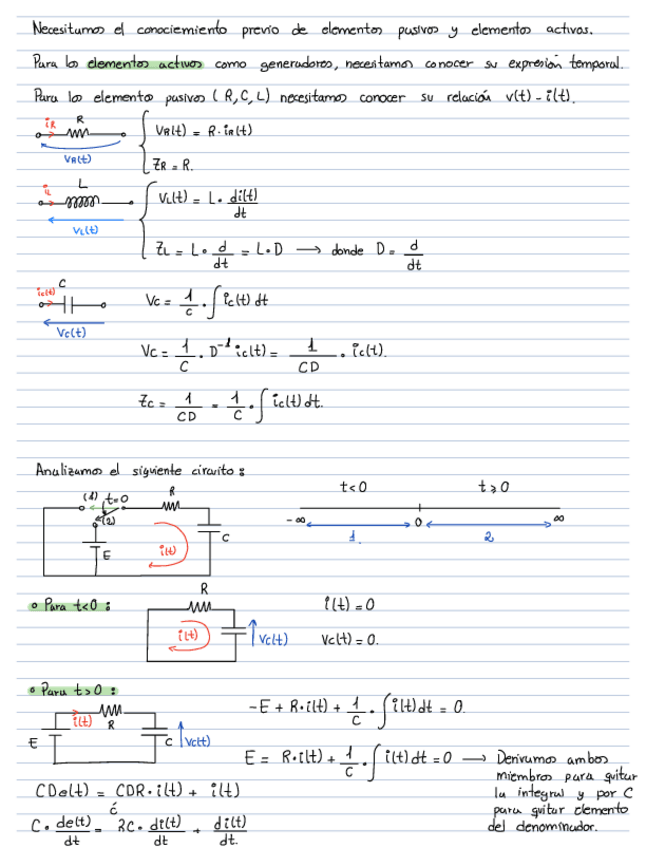 Necesitamos el conociemiento previo de elementos pasivos y elementos activos.
Para los elementos activos como generadores, necesitamos conocer su expresión temporal.
Para los elementos pasivos (R, C, L) necesitamos conocer su relación v(t) - i(t).
iR R
VR(t)
VR(t) = R · iR(t)
ZR = R.
iL L
VL(t)
VL(t) = L · di(t)/dt
ZL = L · d/dt = L · D → donde D = d/dt
ic(t) C
Vc(t)
Vc = 1/c · ∫ ic(t) dt
Vc = 1/C · D⁻¹ ic(t) = 1/CD · ic(t).
Zc = 1/CD = 1/C · ∫ ic(t) dt.
Analizamos el siguiente circuito:
(1) t=0 R
(2)
E i(t) C
t<0 t⩾0
-∞ 0 ∞
1 2
Para t<0:
R
i(t) Vc(t)
i(t) = 0
Vc(t) = 0.
Para t>0:
i(t) R
E C Vc(t)
-E + R·i(t) + 1/C · ∫ i(t) dt = 0.
E = R·i(t) + 1/C · ∫ i(t) dt = 0 → Derivamos ambos
miembros para quitar
la integral y por C
para quitar elemento
del denominador.
CDe(t) = CDR · i(t) + i(t)
C · de(t)/dt = RC · di(t)/dt + di(t)/dt.